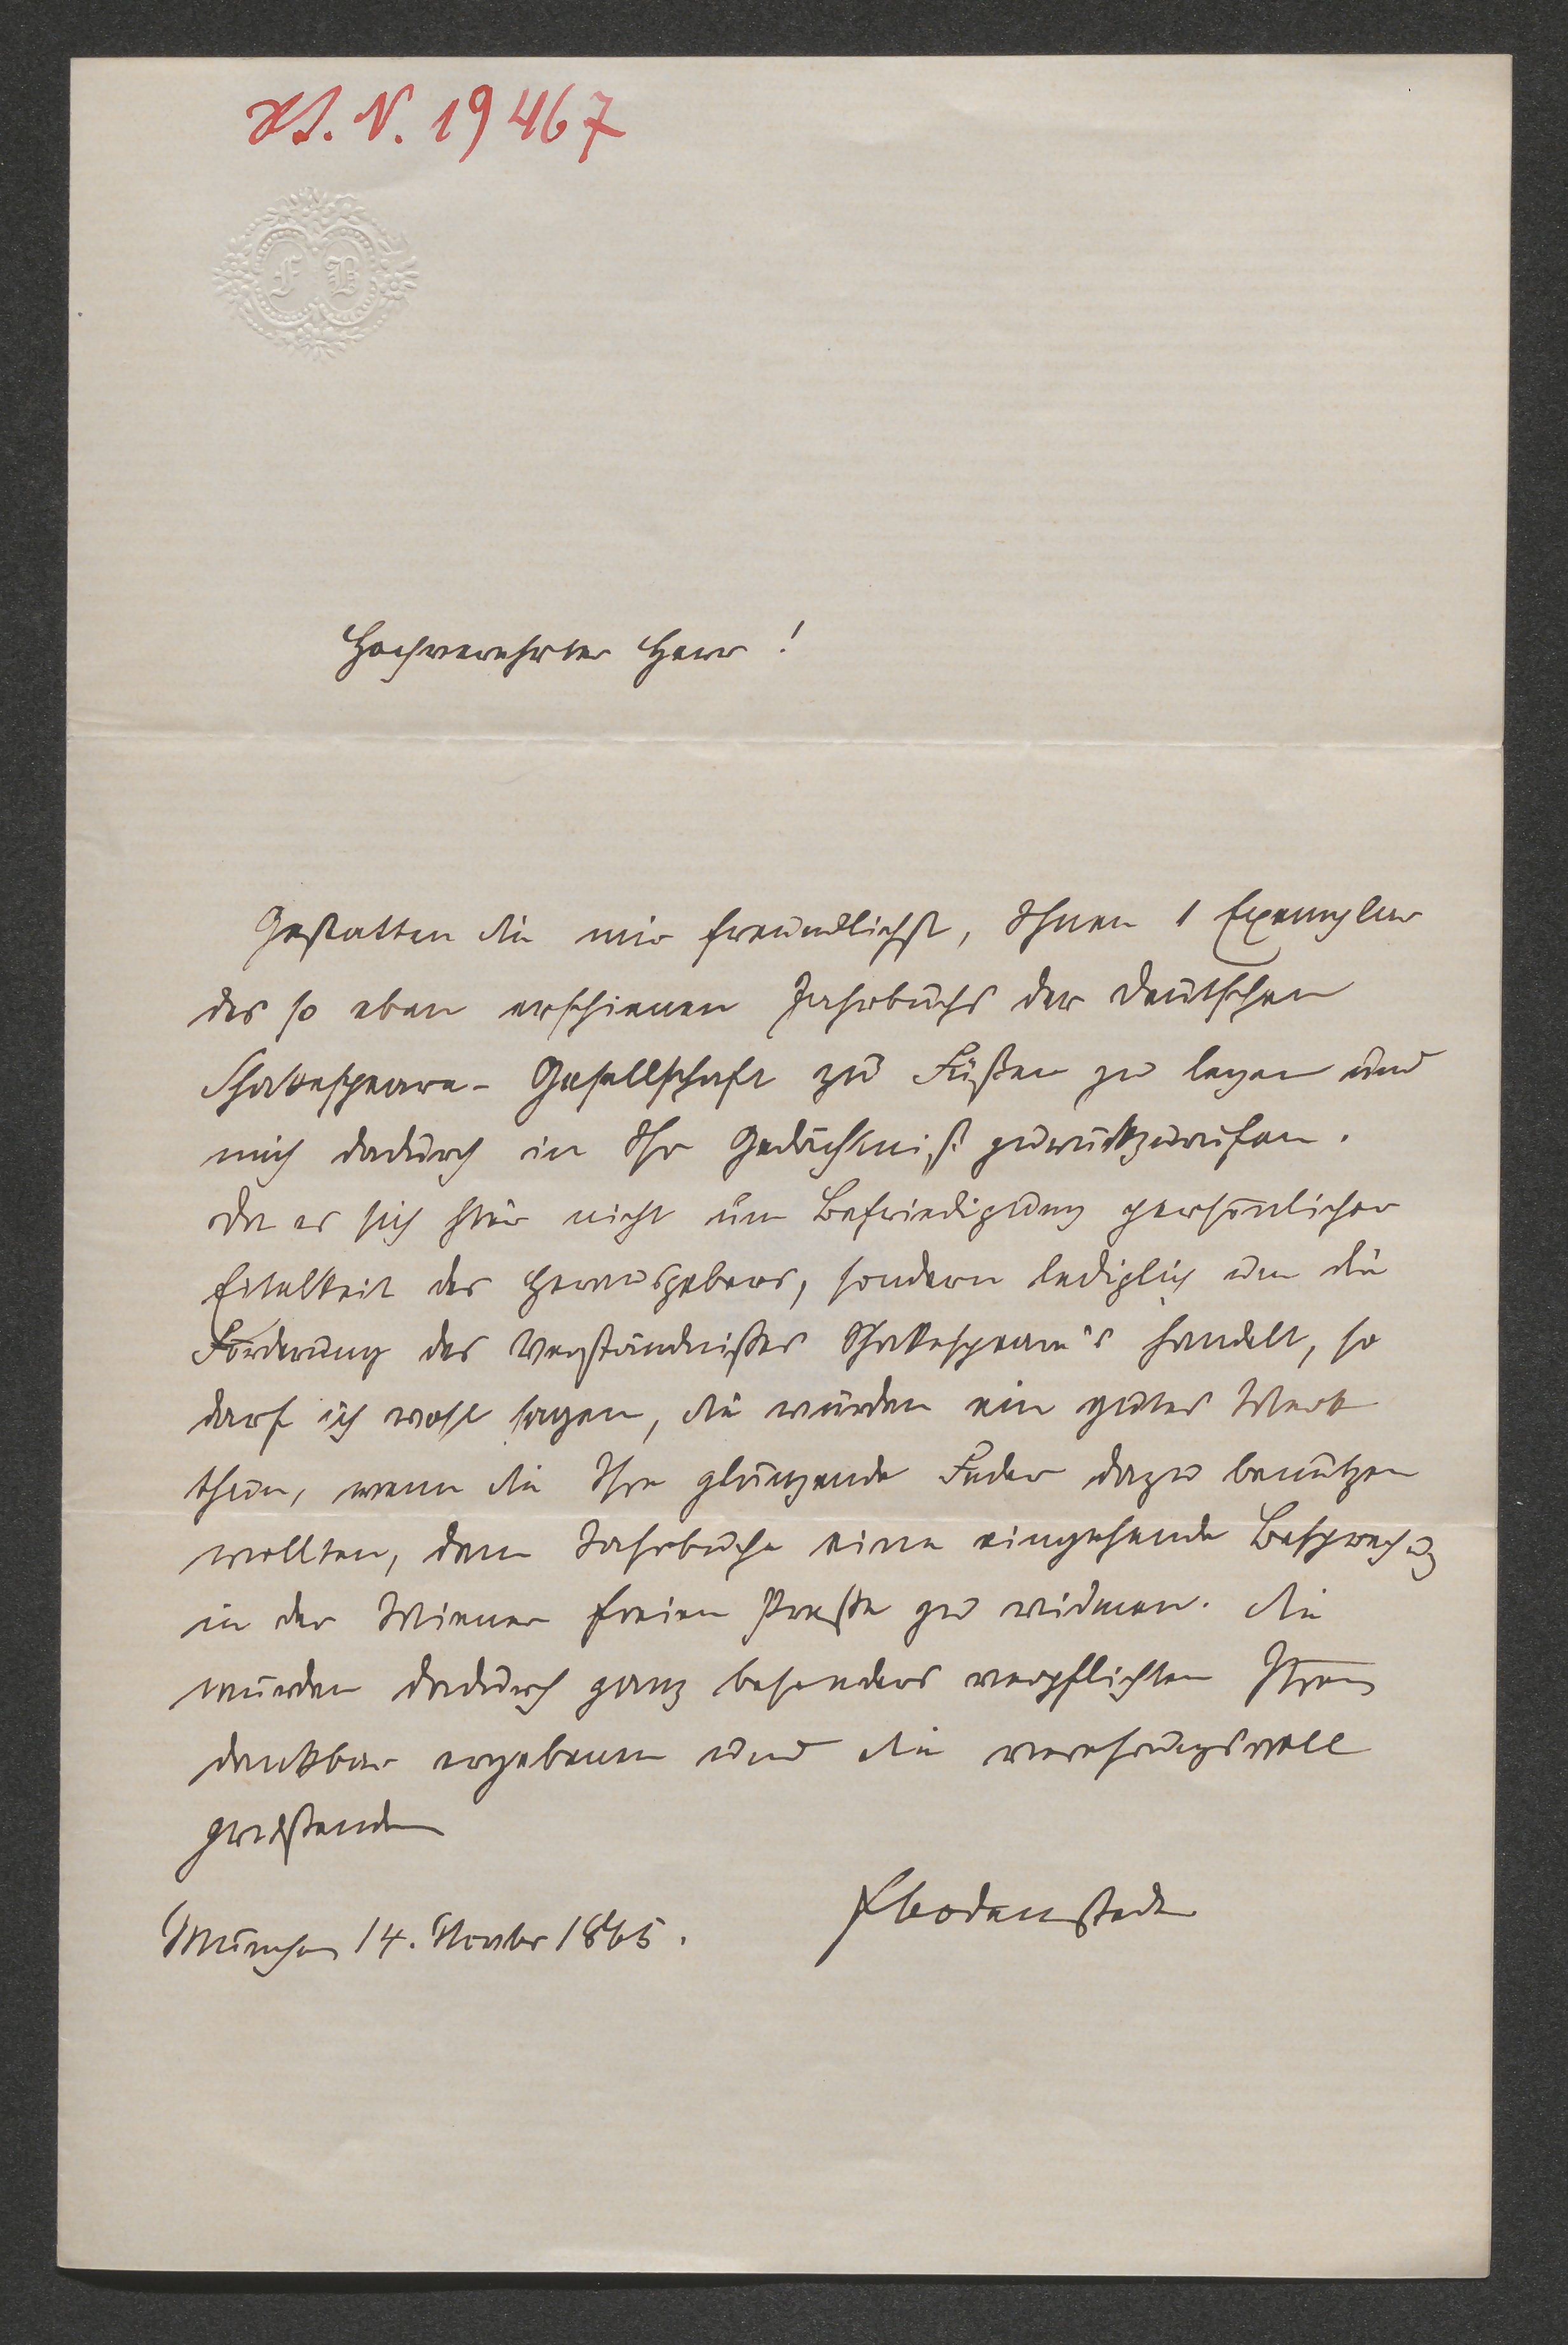 H.I.N. 19467
F B
Hochverehrter Herr!
Gestatten Sie mir freundlichst, Ihnen 1 Exemplar
des so eben erschienen Jahrbuchs der deutschen
Shakespeare-Gesellschaft zu Füßen zu legen und
mich dadurch in Ihr Gedächtniß zurückzurufen.
Da es sich hier nicht um Befriedigung persönlicher
Eitelkeit des Herausgebers, sondern lediglich um die
Förderung des Verständnißes Shakespeare's handelt, so
darf ich wohl sagen, Sie würden ein gutes Werk
thun, wenn Sie Ihre glänzende Feder dazu benutzen
wollten, dem Jahrbuche eine eingehende Besprechung
in der Wiener freien Presse zu widmen. Sie
würden dadurch ganz besonders verpflichten Ihren
dankbar ergebenen und Sie verehrungsvoll
grüßenden
FBodenstedt
München 14. 1865.